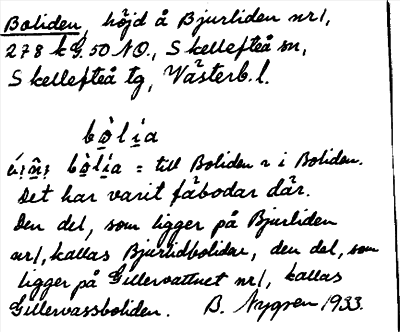 Boliden, höjd å Bjurliden nr 1,
278 k G. 50 NO., Skellefteå sn,
Skellefteå tg, Västerb. l.
bòlía
bòlía = till Boliden i Boliden.
Det har varit fäbodar där.
Den del, som ligger på Bjurliden
nr 1, kallas Bjurlidboliden, den del, som
ligger på Gillervattnet nr 1, kallas
Gillervassboliden. B. Nygren 1933.